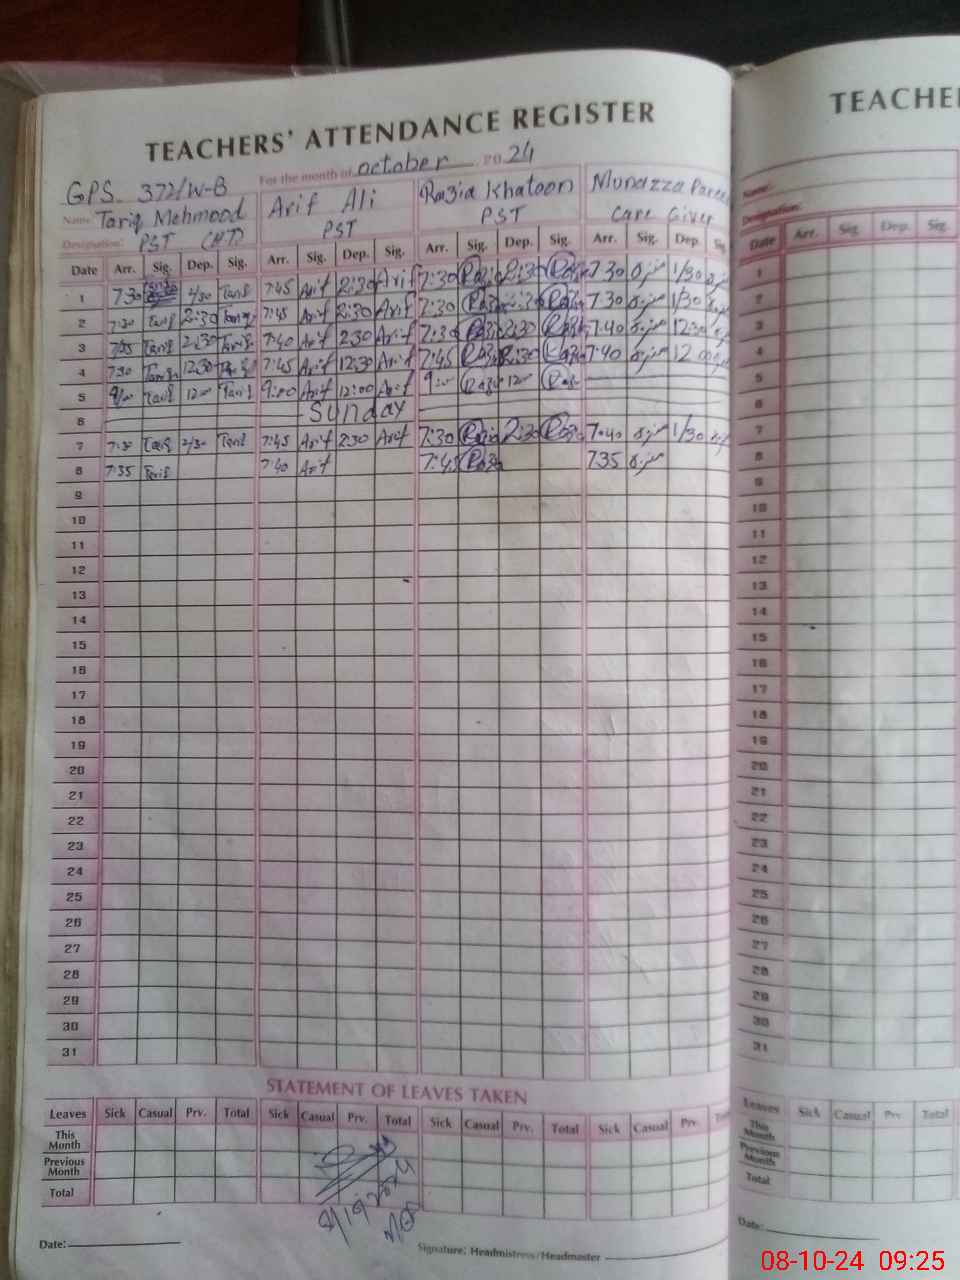 TEACHERS' ATTENDANCE REGISTER
GPS 372/W-B For the month of October 2024
Name: Tariq Mehmood Arif Ali Razia Khatoon Munazza
Designation: PST (HT) PST PST Care Giver
Date Arr. Sig. Dep. Sig. Arr. Sig. Dep. Sig. Arr. Sig. Dep. Sig. Arr. Sig. Dep. Sig.
1 7:30 2/30 Tariq 7:45 Arif 2:30 Arif 7:30 Razia 2:30 Razia 7 30 منزہ 1/30 منزہ
2 7:30 Tariq 2:30 Tariq 7:45 Arif 2:30 Arif 7:30 Razia Razia 7 30 منزہ 1/30
3 7:35 Tariq 2:30 Tariq 7:40 Arif 2 30 Arif 7:30 Razia 2:30 Razia 7:40 منزہ 12:30
4 7:30 Tariq 12:30 Tariq 7:45 Arif 12:30 Arif 7:45 Razia Razia 7:40 منزہ 12
5 9/00 Tariq 12:00 Tariq 9:00 Arif 12:00 Arif 9:00 Razia 12:00 Razia
6 Sunday
7 7:30 Tariq 2/30 Tariq 7:45 Arif 2:30 Arif 7:30 Razia 2:30 Razia 7:40 منزہ 1/30
8 7:35 Tariq 7:40 Arif 7:45 Razia 7 35 منزہ
9
10
11
12
13
14
15
16
17
18
19
20
21
22
23
24
25
26
27
28
29
30
31
STATEMENT OF LEAVES TAKEN
Leaves Sick Casual Prv. Total Sick Casual Prv. Total Sick Casual Prv. Total Sick Casual Prv.
This Month
Previous Month
Total
8/10/2024
Date:
Signature: Headmistress/Headmaster
TEACHE
Name:
Designation:
Date Arr. Sig. Dep. Sig.
1
2
3
4
5
6
7
8
9
10
11
12
13
14
15
16
17
18
19
20
21
22
23
24
25
26
27
28
29
30
31
Leaves Sick Casual Prv. Total
This Month
Previous Month
Total
Date:
08-10-24 09:25